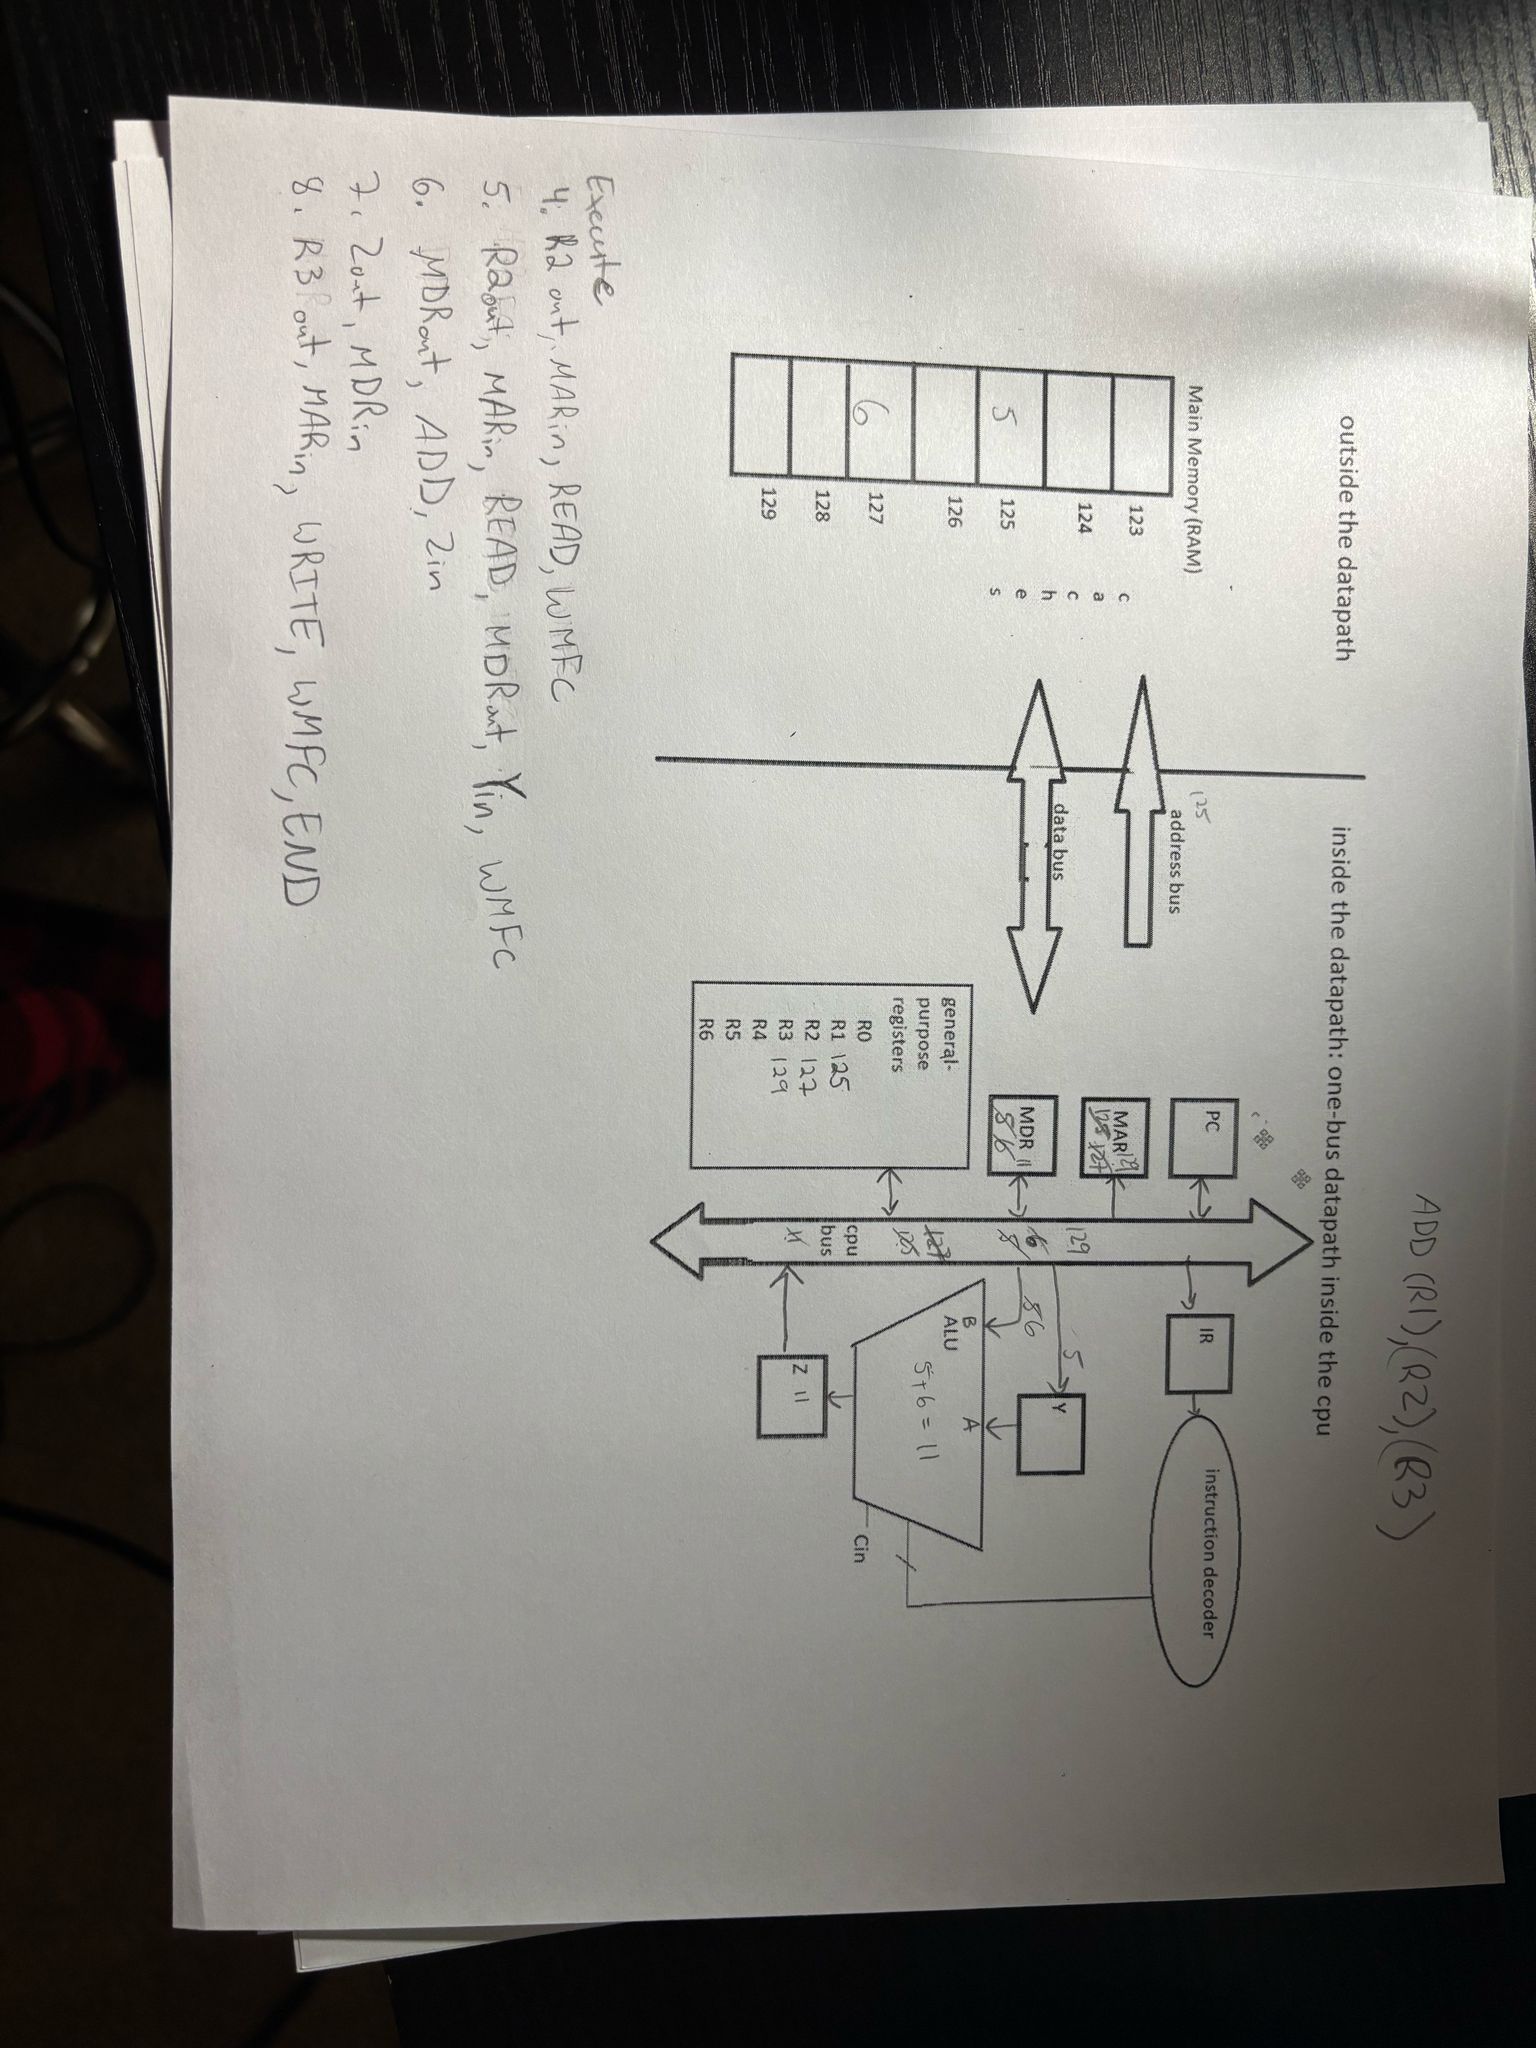 ADD (R1),(R2),(R3)
outside the datapath
inside the datapath: one-bus datapath inside the cpu
Main Memory (RAM)
123
124
5 125
126
6 127
128
129
c
a
c
h
e
s
125
address bus
data bus
PC
MAR 129
125 127
MDR 11
5 6
general-
purpose
registers
R0
R1 125
R2 127
R3 129
R4
R5
R6
129
6
5
127
125
cpu
bus
11
IR
instruction decoder
Y
5
6
B
ALU
A
5+6=11
Z 11
Cin
Execute
4. R2 out, MARin, READ, WMFC
5. R2out, MARin, READ, MDRout, Yin, WMFC
6. MDRout, ADD, Zin
7. Zout, MDRin
8. R3out, MARin, WRITE, WMFC, END